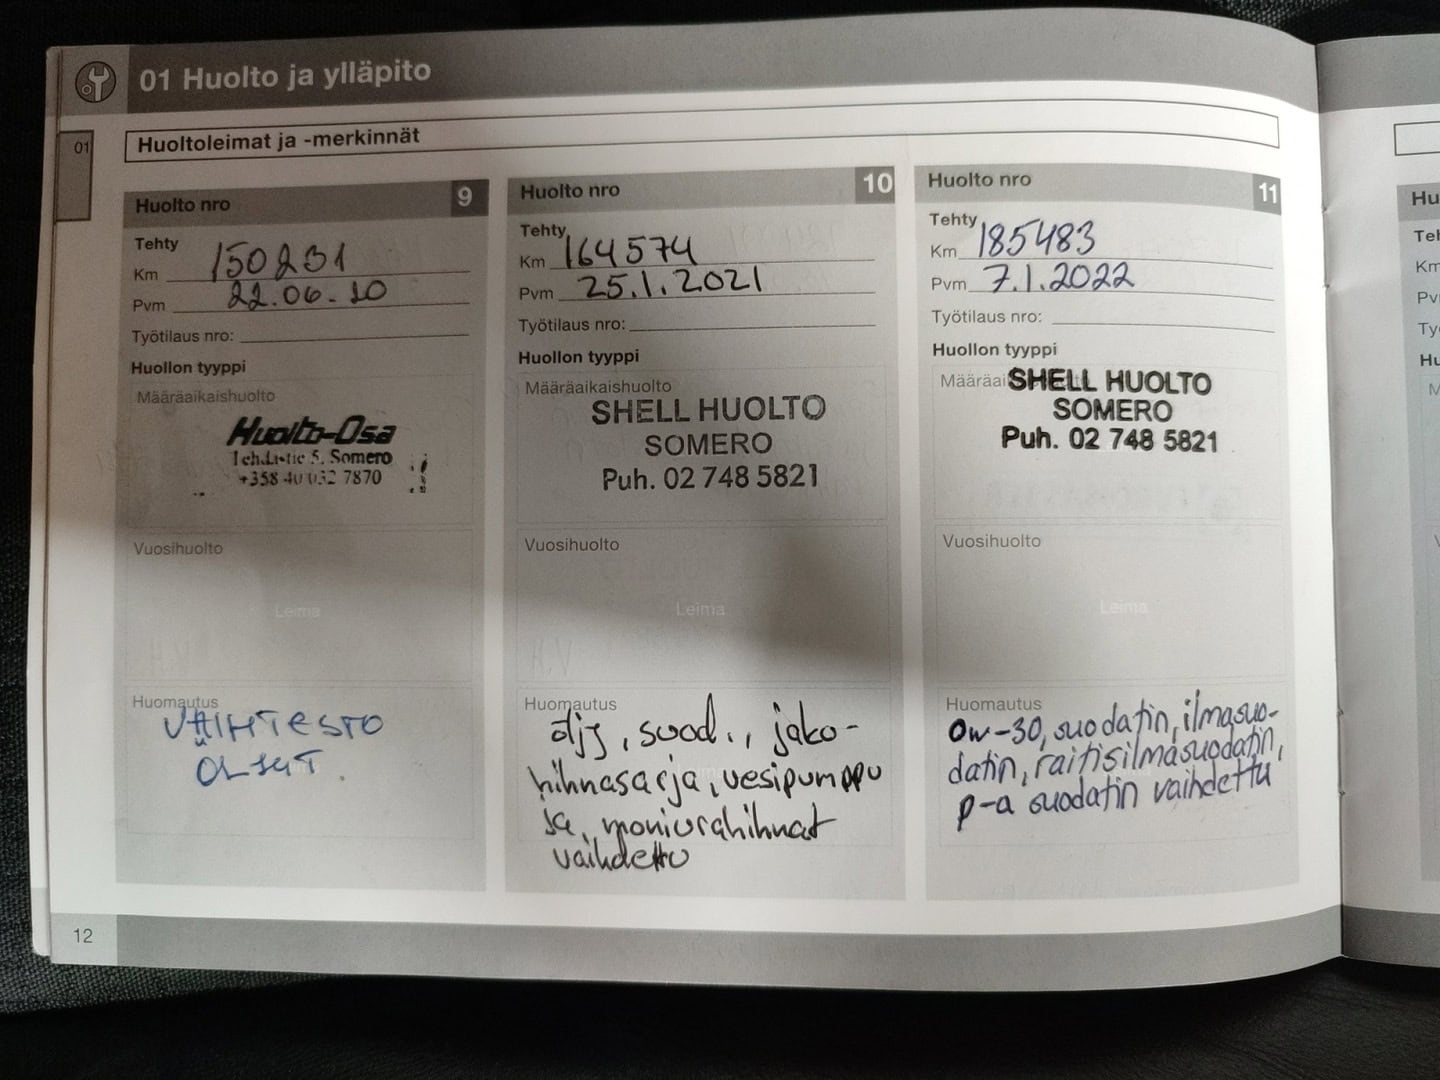 01 Huolto ja ylläpito
01
Huoltoleimat ja -merkinnät
Huolto nro 9
Tehty
Km 150231
Pvm 22.06.20
Työtilaus nro:
Huollon tyyppi
Määräaikaishuolto
Huolto-Osa
5, Somero
+358 40 7870
Vuosihuolto
Leima
Huomautus
VAIHTEISTO
ÖLJYT.
Huolto nro 10
Tehty
Km 164574
Pvm 25.1.2021
Työtilaus nro:
Huollon tyyppi
Määräaikaishuolto
SHELL HUOLTO
SOMERO
Puh. 02 748 5821
Vuosihuolto
Leima
Huomautus
öljy, suod., jako-
hihnasarja, vesipumppu
ja moniurahihnat
vaihdettu
Huolto nro 11
Tehty
Km 185483
Pvm 7.1.2022
Työtilaus nro:
Huollon tyyppi
Määräai
SHELL HUOLTO
SOMERO
Puh. 02 748 5821
Vuosihuolto
Leima
Huomautus
0w-30, suodatin, ilmasuo-
datin, raitisilmasuodatin,
p-a suodatin vaihdettu
12
Hu
Km